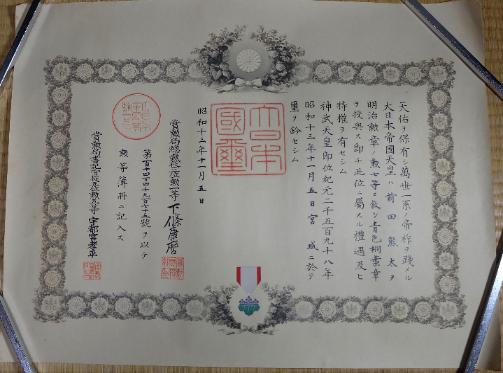 天佑ヲ保有シ萬世一系ノ帝祚ヲ踐メル
大日本帝國天皇ハ前田熊太ヲ
明治勲章ノ勲七等ニ敍シ青色桐葉章
ヲ授與ス即チ此位ニ屬スル禮遇及ヒ
特權ヲ有セシム
神武天皇即位紀元二千五百九十八年
昭和十三年十一月五日宮城ニ於テ
璽ヲ鈐セシム
大日本
國璽
昭和十三年十一月五日
賞勲局總裁從三位勲一等下條康麿
ヲ以テ
勲等簿冊ニ記入ス
賞勲局書記官
宇都宮孝平